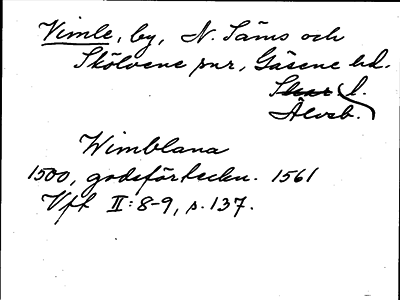 Vimle, by, N. Säms och
Skölvene snr, Gäsene hd.
Skar l.
Älvsb.
Wimblana
1500, godsförteckn. 1561
Vft II:8-9, s. 137.